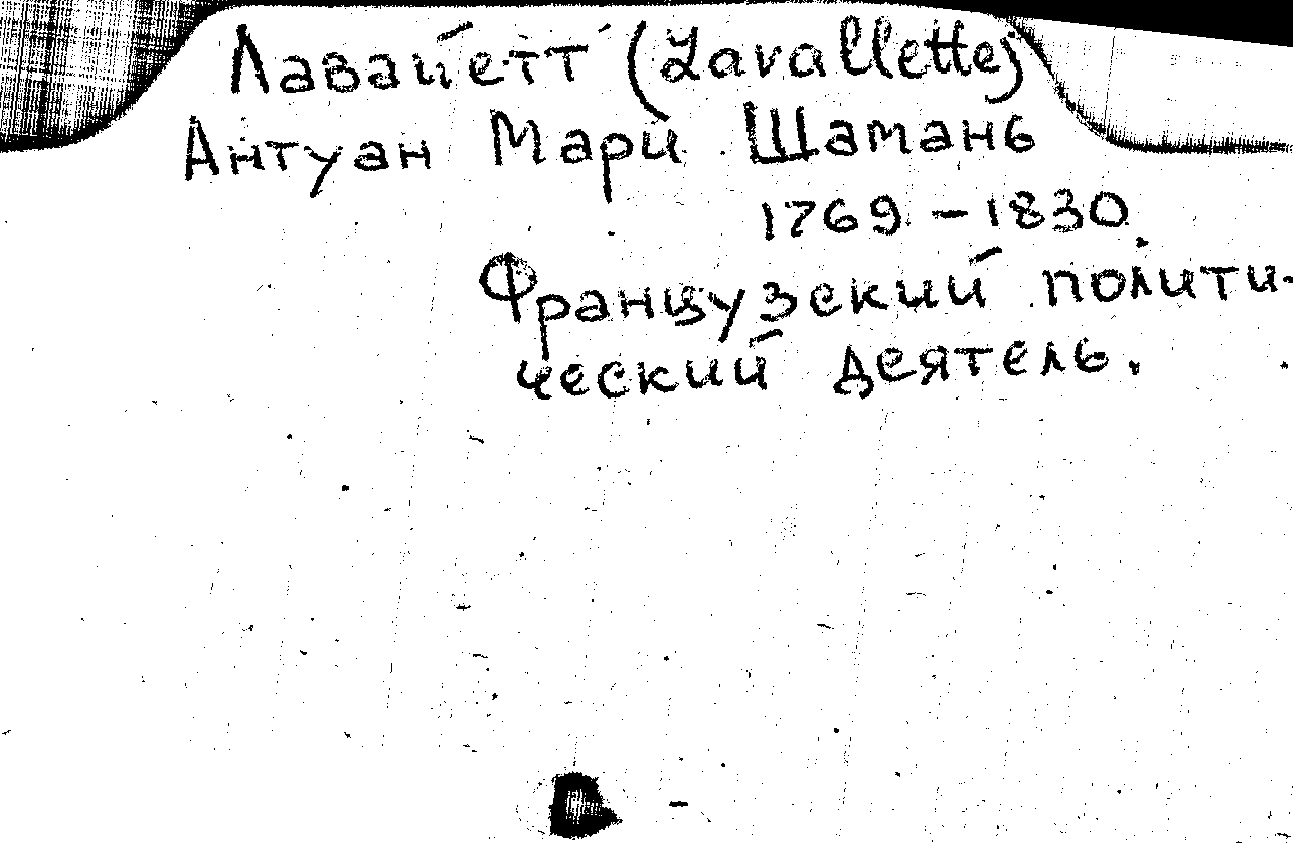 Лавайетт (Lavallette)
Антуан Мари Шамань
1769 - 1830.
Французский полити-
ческий деятель.